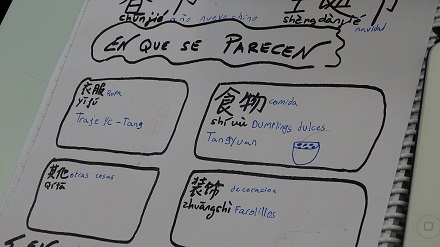 春节
chūnjié año nuevo chino
圣诞节
shèngdànjié
navidad
EN QUE SE PARECEN
衣服 ropa
yīfú
Traje
食物 comida
shíwù Dumplings dulces...
Tangyuan
其他 otras cosas
qítā
装饰 decoracion
zhuāngshì Farolillos